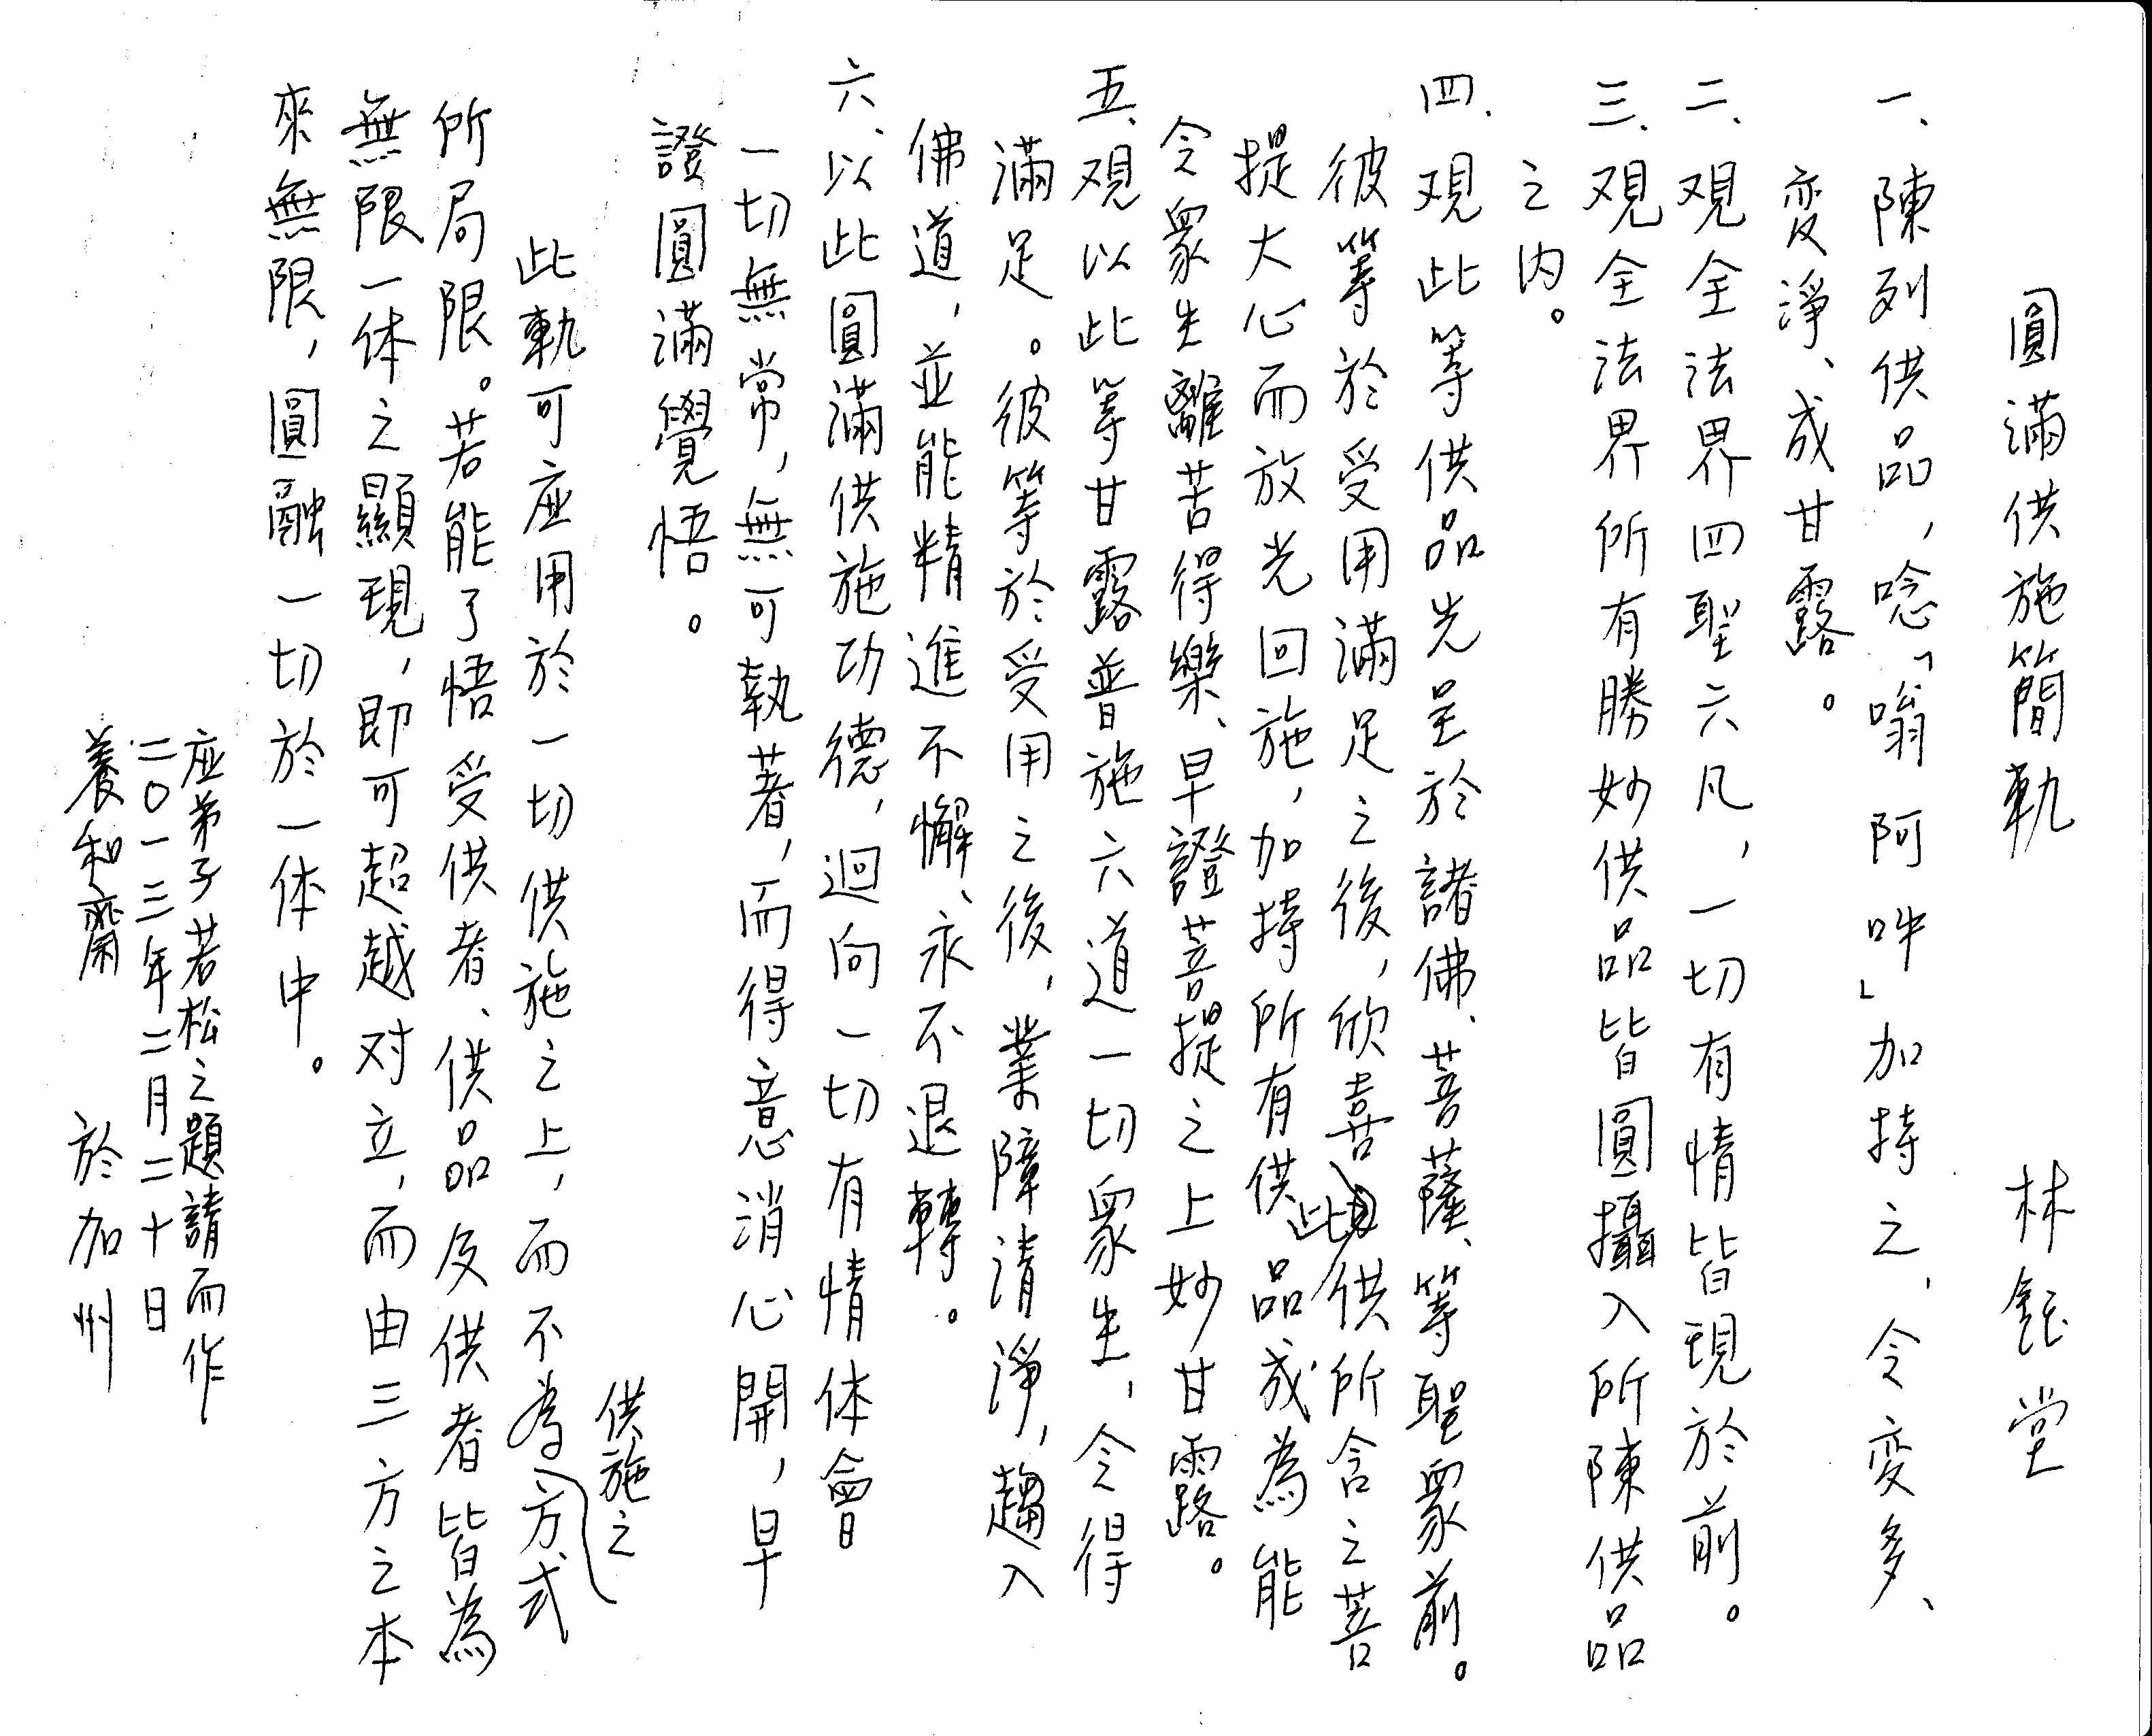 圓滿供施簡軌　林鈺堂
一、陳列供品，唸「嗡 阿 吽」加持之，令变多、
变淨、成甘露。
二、观全法界四聖六凡，一切有情皆現於前。
三、观全法界所有勝妙供品皆圓攝入所陳供品
之内。
四、观此等供品先呈於諸佛、菩薩、等聖眾前。
彼等於受用滿足之後，欣喜此供所含之菩
提大心而放光回施，加持所有供品成為能
令眾生離苦得樂、早證菩提之上妙甘露。
五、观以此等甘露普施六道一切眾生，令得
滿足。彼等於受用之後，業障清淨，趨入
佛道，並能精進不懈、永不退轉。
六、以此圓滿供施功德，迴向一切有情体會
一切無常，無可執著，而得意消心開，早
證圓滿覺悟。
此軌可应用於一切供施之上，而不為供施之方式
所局限。若能了悟受供者、供品及供者皆為
無限一体之顯現，即可超越对立，而由三方之本
來無限，圓融一切於一体中。
应弟子若松之題請而作
二〇一三年二月二十日
養和齋　於加州